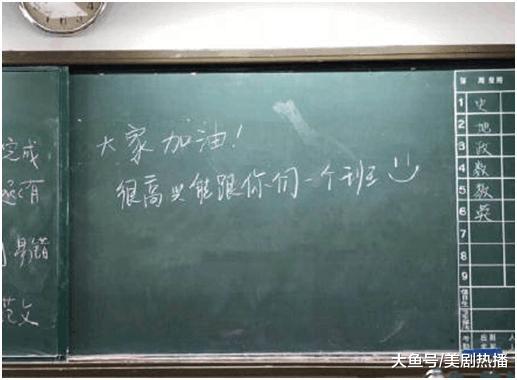 大家加油!
很高兴能跟你们一个班
完成
易错
范文
1 史
2 地
3 政
4 数
5 数
6 英
7
8
9
值日生
大鱼号/美剧热播